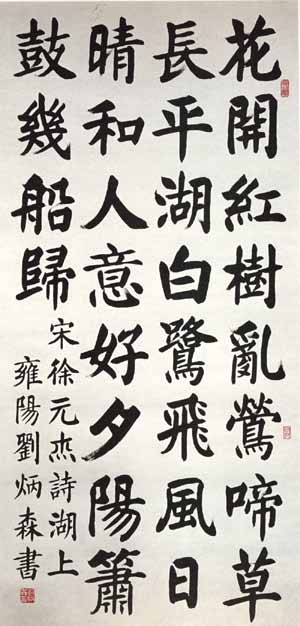 花開紅樹亂鶯啼草
長平湖白鷺飛風日
晴和人意好夕陽簫
鼓幾船歸
宋徐元杰詩湖上
雍陽劉炳森書